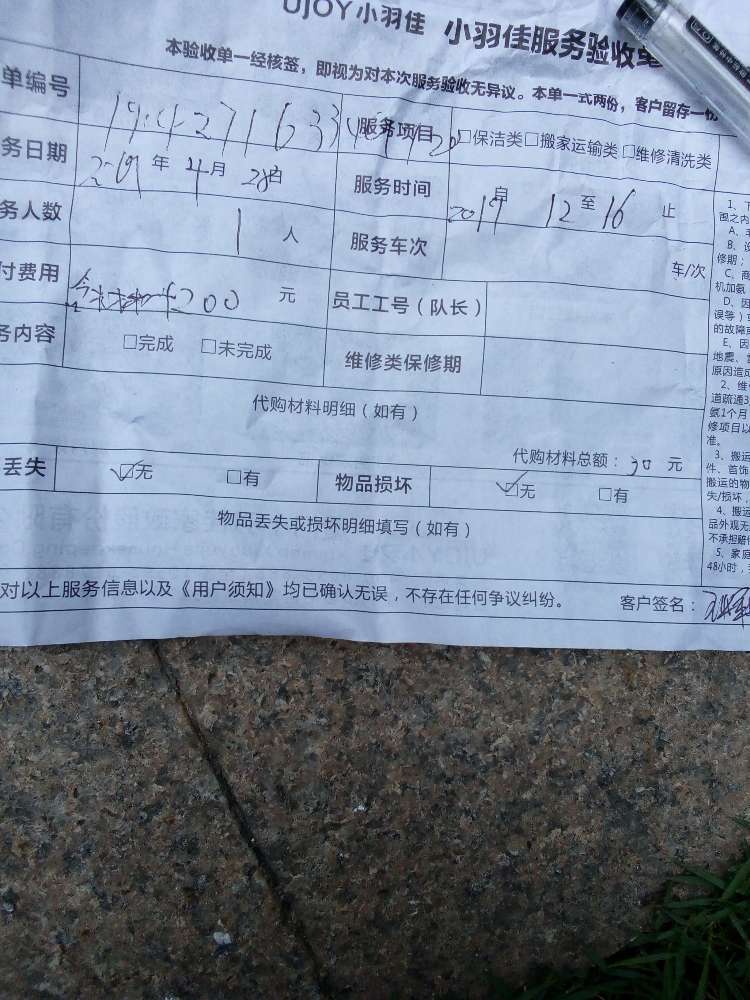 UJOY小羽佳 小羽佳服务验收单
本验收单一经核签，即视为对本次服务验收无异议。本单一式两份，客户留存一份
单编号 服务项目 □保洁类□搬家运输类□维修清洗类
务日期 2019年4月28日 服务时间 自2019 12至16止
务人数 1人 服务车次 车/次
付费用 200元 员工工号（队长）
务内容 □完成 □未完成 维修类保修期
代购材料明细（如有）
代购材料总额：30元
丢失 ☑无 □有 物品损坏 ☑无 □有
物品丢失或损坏明细填写（如有）
对以上服务信息以及《用户须知》均已确认无误，不存在任何争议纠纷。 客户签名：
1、
围之内
A、
B、
修期；
C、商
机加氨
D、因
误等）
的故障
E、因
地震、
原因造成
2、维
道疏通3
氨1个月
修项目以
准。
3、搬运
件、首饰
搬运的物
失/损坏，
4、搬运
品外观无
不承担赔
5、家庭
48小时，